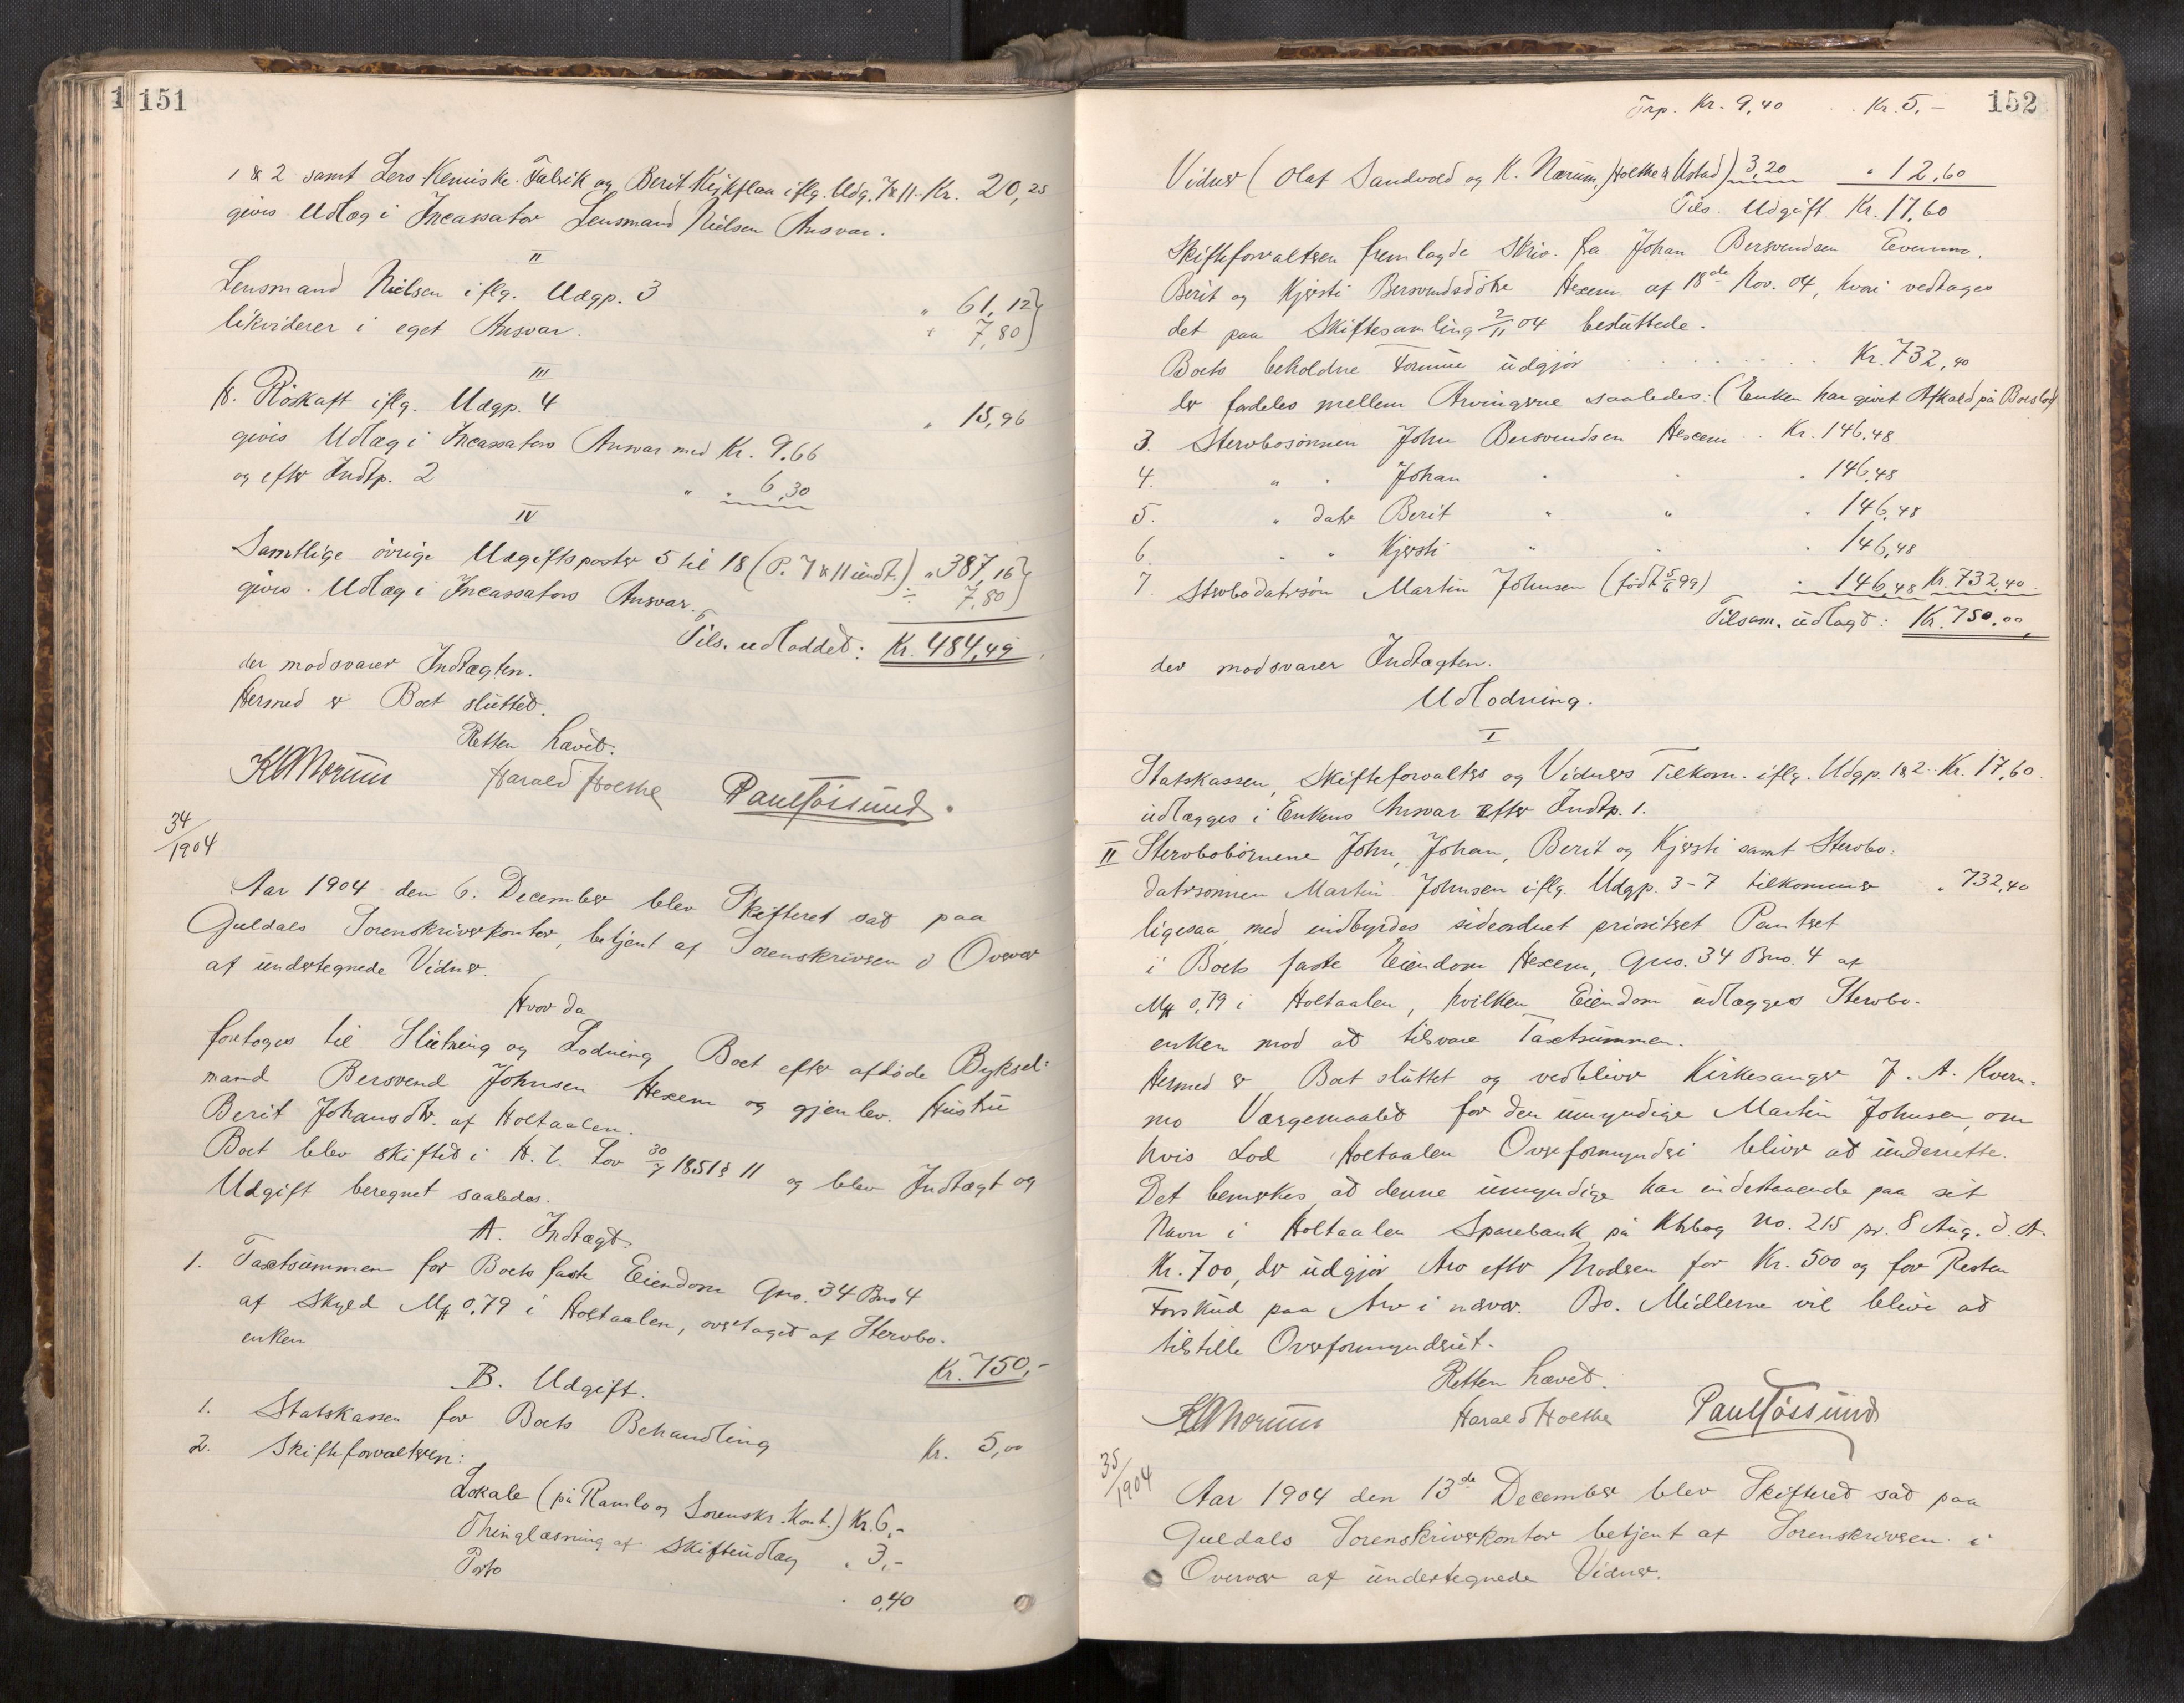 151
1 & 2 samt Lers Kemiske Fabrik og Berit Kirkflaa iflg. Udg. 7 & 11. Kr. 20,25
givis Udlæg i Incassator Lensmand Nielsen Ansvar.
II
Lensmand Nielsen iflg. Udgp. 3 " 61,12
likviderer i eget Ansvar. " 7,80
III
H. Röskaft iflg. Udgp. 4 " 15,96
givis Udlæg i Incassators Ansvar med Kr. 9.66
og efter Indtp. 2 " " 6,30
IV
Samtlige övrige Udgiftsposter 5 til 18 (P. 7 & 11 undt.) " 387,16
givis Udlæg i Incassators Ansvar. ÷ 7,80
Tils. udloddet: Kr. 484,49
der modsvarer Indtægten.
Hermed er Boet sluttet.
Retten hævet.
KANærum Harald Holthe Paul Fössund.
34/1904
Aar 1904 den 6. December blev Skifteret sat paa
Guldals Sorenskriverkontor, betjent af Sorenskriveren i Overvær
af undertegnede Vidner.
Hvor da
foretoges til Slutning og Lodning Boet efter afdöde Byksel-
mand Bersvend Johnsen Hexem og gjenlev. Hustru
Berit Johansdtr. af Holtaalen.
Boet blev skiftet i H. t. Lov 30/7 1851 § 11 og blev Indtægt og
Udgift beregnet saaledes.
A. Indtægt.
1. Taxtsummen for Boets faste Eiendom Gno. 34 Bno 4
af Skyld Mk 0,79 i Holtaalen, overtaget af Stervbo-
enken Kr. 750,-
B. Udgift.
1. Statskassen for Boets Behandling Kr. 5,00
2. Skifteforvalteren:
Lokale (på Ramlo og Sorenskr. Kont.) Kr. 6,-
Thinglæsning af Skifteudlæg " 3,-
Porto " 0,40
152
Trp. Kr. 9,40 . . Kr. 5,-
Vidner (Olaf Sandvold og K. Nærum, Holthe & Ustad) 3,20 " 12,60
Tils. Udgift Kr. 17,60
Skifteforvalteren fremlagde Skriv. fra Johan Bersvendsen Evenmo,
Berit og Kjersti Bersvendsdötre Hexem af 18de Nov. 04, hvori vedtages
det paa Skiftesamling 2/11 04 besluttede.
Boets beholdne Formue udgjör . . . . . . . Kr. 732,40
der fordeles mellem Arvingerne saaledes: (Enken har givet Afkald på Boeslod)
3. Stervbosönnen John Bersvendsen Hexem . . Kr. 146,48
4. " " Johan " " " 146,48
5. " datr Berit " " " 146,48
6. " " Kjersti " " " 146,48
7. Stervbodatrsön Martin Johnsen (född 5/6 99) " 146,48 Kr. 732,40.
Tilsam. udlagt: Kr. 750.00
der modsvarer Indtægten.
Udlodning.
I
Statskassen, Skifteforvalters og Vidners Tilkom. iflg. Udgp. 1 & 2 Kr. 17,60.
udlægges i Enkens Ansvar efter Indtp. 1.
II Stervbobörnene John, Johan, Berit og Kjersti samt Stervbo-
datrsönnen Martin Johnsen iflg. Udgp. 3-7 tilkommer " 732,40
ligesaa med indbyrdes sideordnet prioritet Panteret
i Boets faste Eiendom Hexem, Gno. 34 Bno. 4 af
Mk 0,79 i Holtaalen, hvilken Eiendom udlægges Stervbo-
enken mod at tilsvare Taxtsummen.
Hermed er Boet sluttet og vedbliver Kirkesanger J. A. Kvern-
mo Værgemaalet for den umyndige Martin Johnsen, om
hvis Lod Holtaalen Overformynderi bliver at underrette.
Det bemerkes at denne umyndige har indestaaende paa sit
Navn i Holtaalen Sparebank på Ktrbog No. 215 pr. 8 Aug. d. A.
Kr. 700, der udgjör Arv efter Moderen for Kr. 500 og for Resten
Forskud paa Arv i nærvær. Bo. Midlerne vil blive at
tilstille Overformynderiet.
Retten hævet.
KANærum Harald Holthe Paul Fössund
35/1904
Aar 1904 den 13de December blev Skifteret sat paa
Guldals Sorenskriverkontor betjent af Sorenskriveren i
Overvær af undertegnede Vidner.